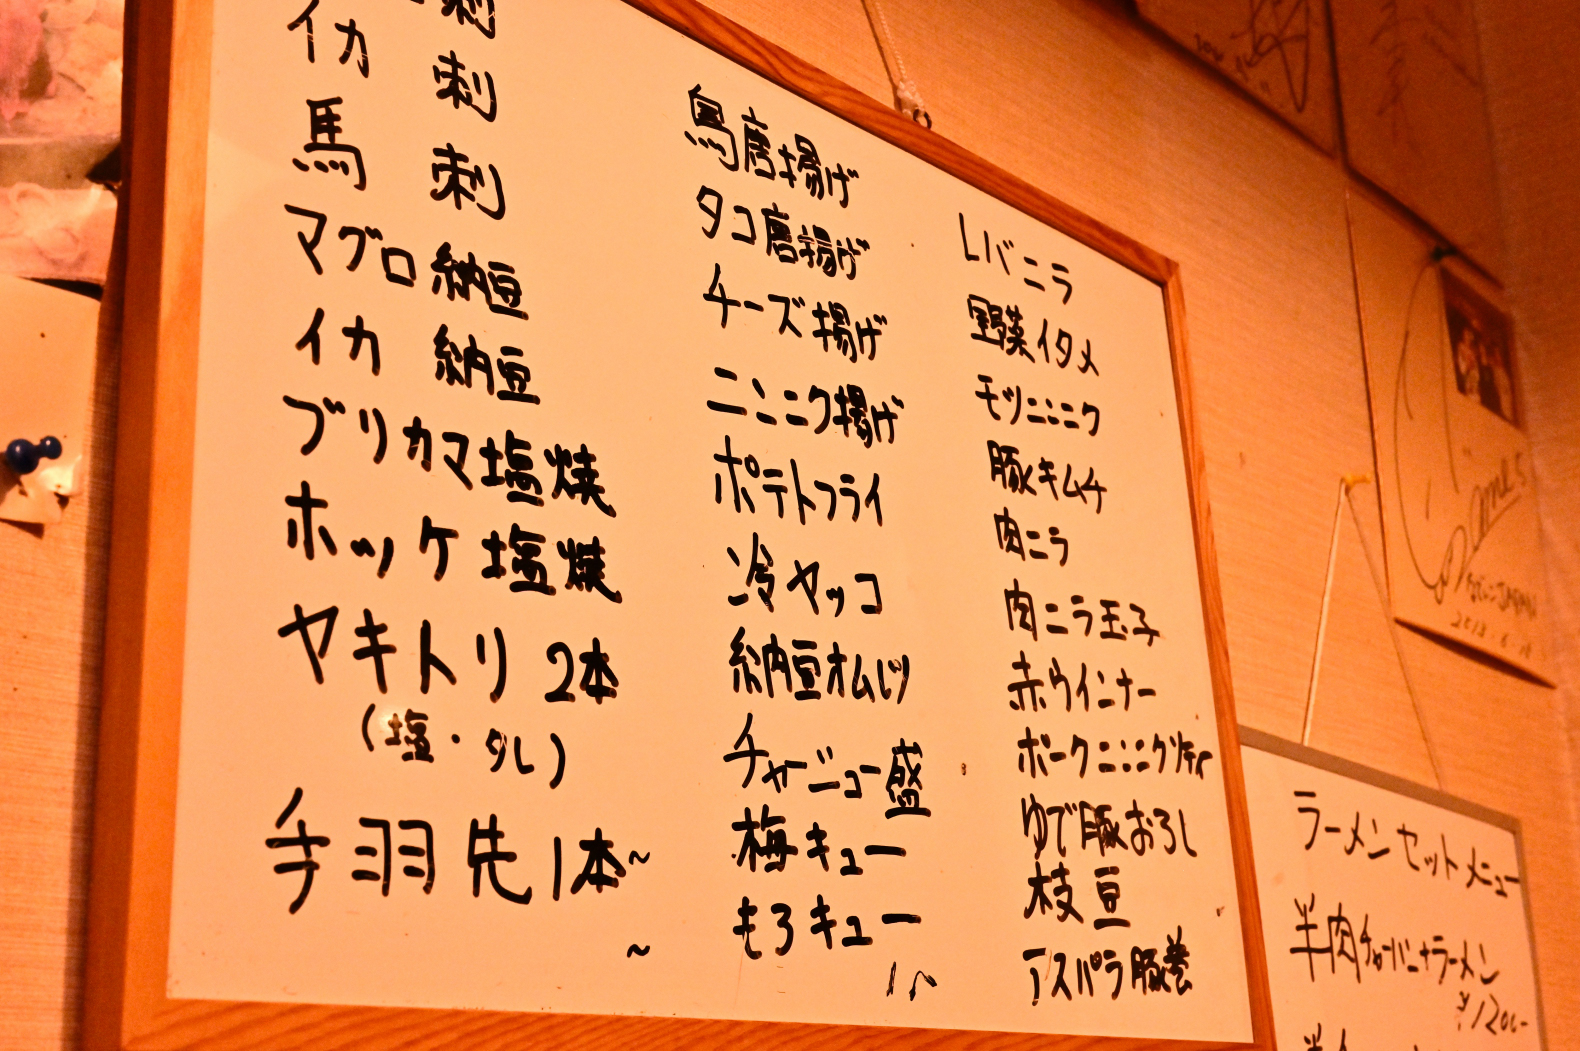 刺
イカ 刺
馬 刺
マグロ納豆
イカ 納豆
ブリカマ塩焼
ホッケ塩焼
ヤキトリ 2本
(塩・タレ)
手羽先1本~
~
鳥唐揚げ
タコ唐揚げ
チーズ揚げ
ニンニク揚げ
ポテトフライ
冷ヤッコ
納豆オムレツ
チャーシュー盛
梅キュー
もろキュー
レバニラ
野菜イタメ
モツニンニク
豚キムチ
肉ニラ
肉ニラ玉子
赤ウインナー
ポークニンニクソティ
ゆで豚おろし
枝豆
アスパラ豚巻
ラーメンセットメニュー
半肉チャーハン+ラーメン
¥1200-